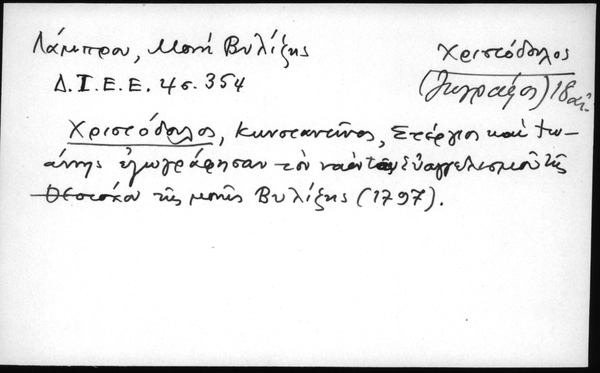 Λάμπρου, Μονή Βυλίζης
Χριστόδουλος
Δ.Ι.Ε.Ε. 4 σ. 354
(ζωγράφος) 18 αἰ.
Χριστόδουλος, Κωνσταντῖνος, Στέργιος καὶ Ἰω-
άννης ἐζωγράφησαν τὸν ναὸν τοῦ Εὐαγγελισμοῦ τῆς
Θεοτόκου τῆς μονῆς Βυλίζης (1797).